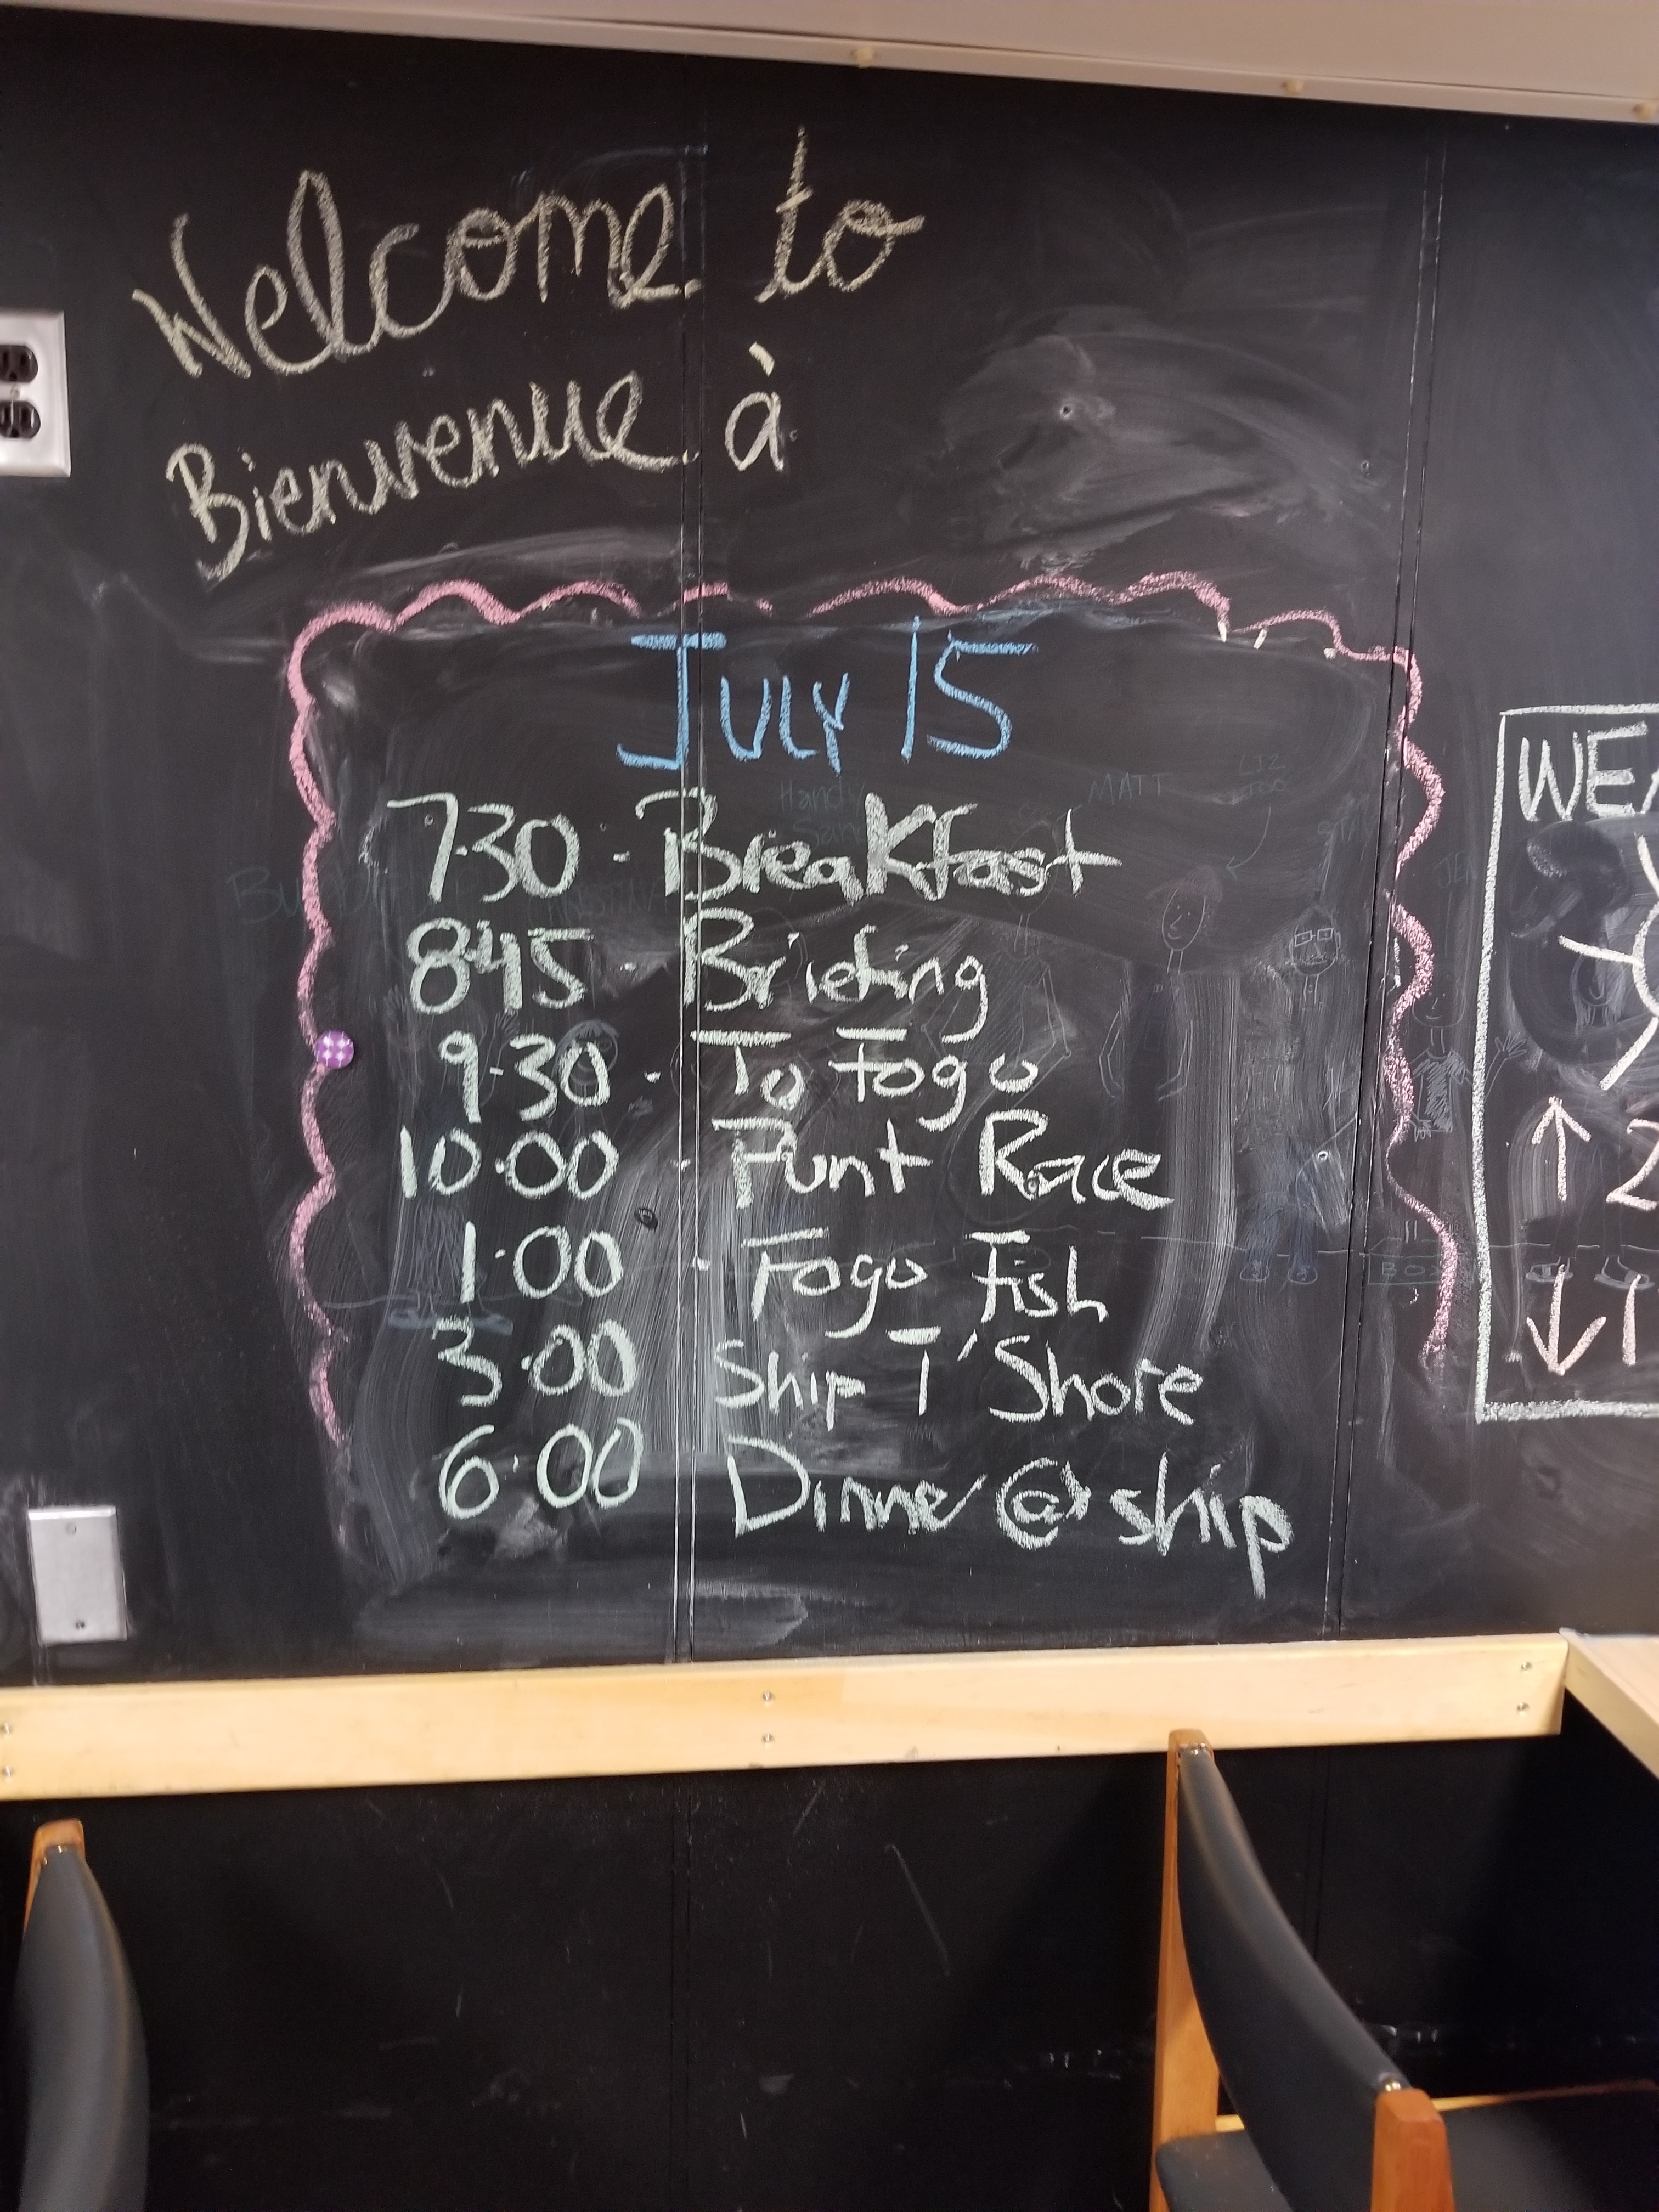 Welcome to
Bienvenue à
July 15
7:30 - Breakfast
8:45 - Briefing
9:30 - To Fogo
10:00 - Punt Race
1:00 - Fogo Fish
3:00 Ship T' Shore
6:00 Dinner @ ship
MATT
LIZ
TOO
Handy
BOX
WEA
↑ 2
↓ 1